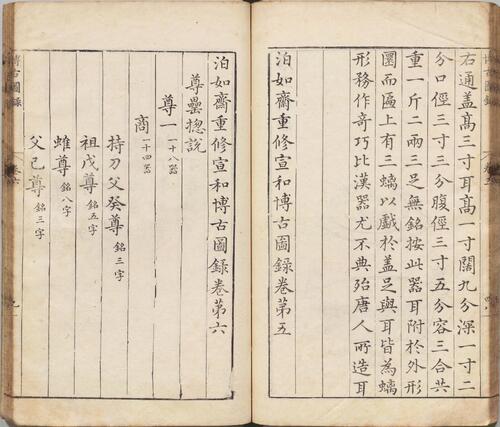 右通盖高三寸耳高一寸闊九分深一寸二
分口徑三寸三分腹徑三寸五分容三合共
重一斤二兩三足無銘按此器耳附於外形
圜而匾上有三螭以戲於盖足與耳皆為螭
形務作奇巧比漢器尤不典殆唐人所造耳
泊如齋重修宣和博古圖録卷第五
泊如齋重修宣和博古圖録卷第六
尊罍揔說
尊一 一十八器
商 一十四器
持刀父癸尊 銘三字
祖戊尊 銘五字
蜼尊 銘八字
父己尊 銘三字
博古圖録
卷六